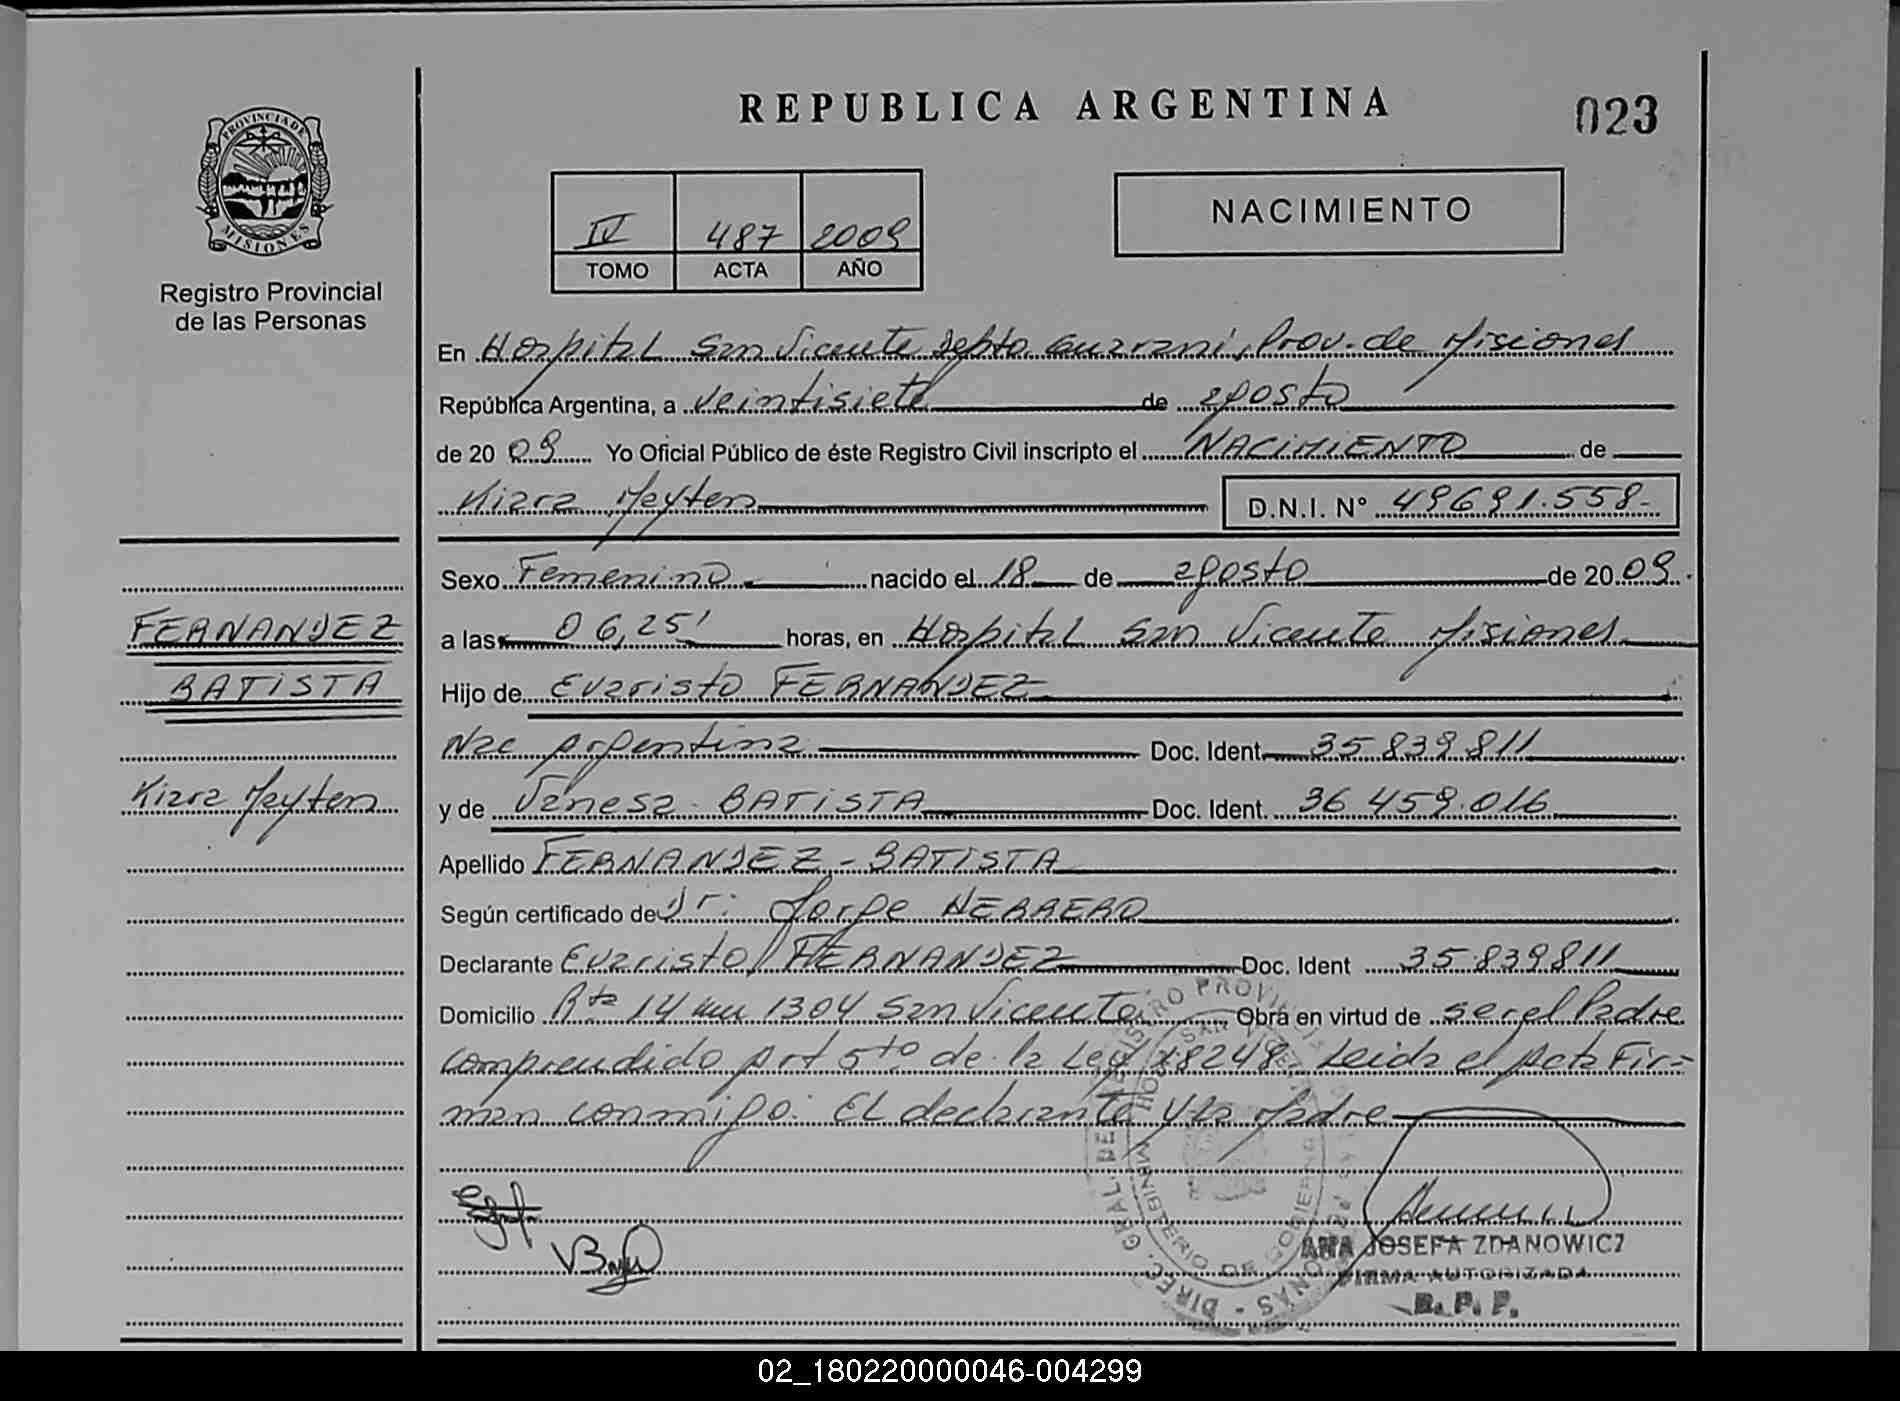 REPUBLICA ARGENTINA
023
PROVINCIA DE
MISIONES
Registro Provincial
de las Personas
IV 487 2009
TOMO ACTA AÑO
NACIMIENTO
En Hospital San Vicente Depto Guaraní, Prov. de Misiones
República Argentina, a veintisiete de agosto
de 20 09 Yo Oficial Público de éste Registro Civil inscripto el NACIMIENTO de
Kiara Meylen D.N.I. N° 49691.558-
Sexo Femenino nacido el 18 de agosto de 20 09.
a las 06,25' horas, en Hospital San Vicente Misiones
Hijo de Evaristo FERNANDEZ
Nac Argentina Doc. Ident. 35.839.811
y de Vanesa BATISTA Doc. Ident. 36.459.016
Apellido FERNANDEZ - BATISTA
Según certificado de Dr: Jorge HERRERO
Declarante Evaristo FERNANDEZ Doc. Ident 35.839811
Domicilio Rta 14 1304 San Vicente Obra en virtud de ser el Padre
comprendido Art 5to de la Ley 18248. Leida el Acta Fir=
man conmigo: El declarante y la Madre
FERNANDEZ
BATISTA
Kiara Meylen
DIREC. GRAL. REGISTRO PROVINCIAL PERSONAS
MINISTERIO DE GOBIERNO
HOSP. SAN VICENTE
ANA JOSEFA ZDANOWICZ
FIRMA AUTORIZADA
R. P. P.
02_180220000046-004299